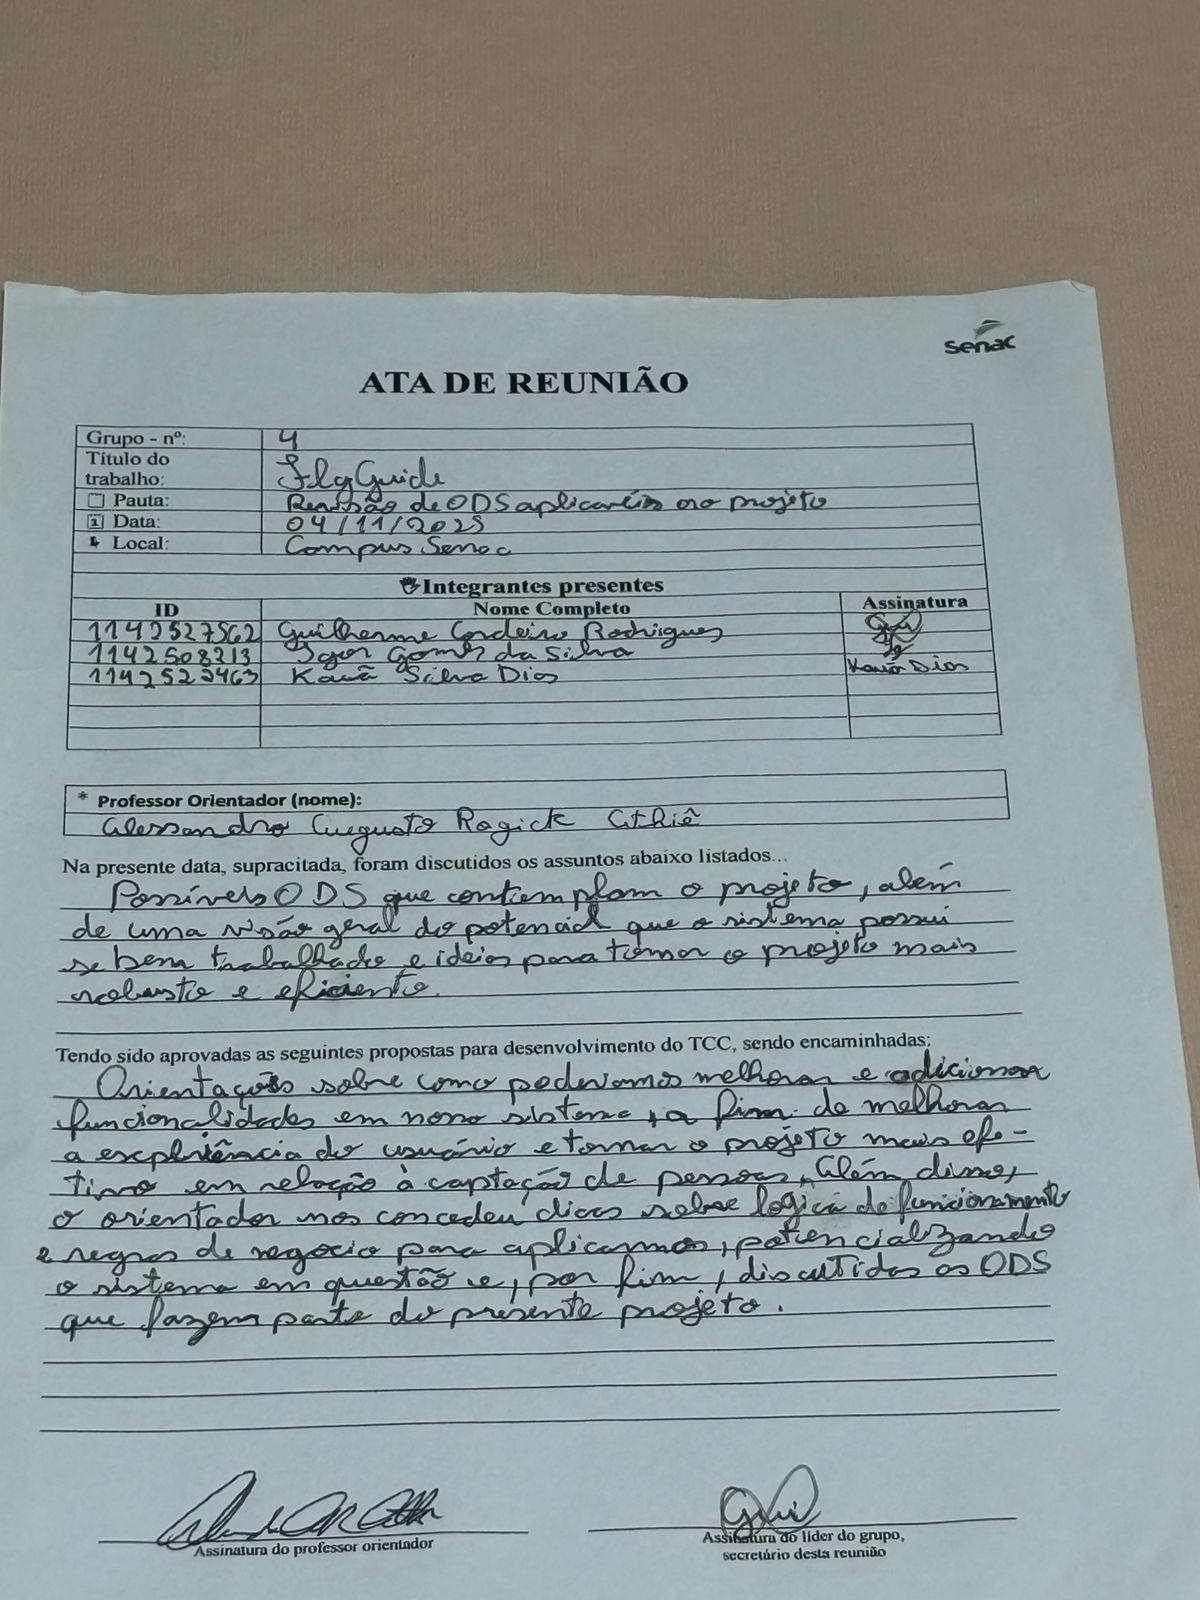 Senac
ATA DE REUNIÃO
Grupo - nº: 4
Título do
trabalho: FlyGuide
Pauta: Reunião de ODS aplicavéis ao projeto
Data: 04/11/2025
Local: Campus Senac
Integrantes presentes
ID Nome Completo Assinatura
1142527562 Guilherme Cordeiro Rodrigues Gui
1142508213 Igor Gomes da Silva
1142522463 Kauã Silva Dias Kauã Dias
* Professor Orientador (nome):
Alessandro Augusto Ragick Athiê
Na presente data, supracitada, foram discutidos os assuntos abaixo listados...
Possíveis ODS que contemplam o projeto, além
de uma visão geral do potencial que o sistema possui
se bem trabalhado e ideias para tornar o projeto mais
robusto e eficiente.
Tendo sido aprovadas as seguintes propostas para desenvolvimento do TCC, sendo encaminhadas:
Orientações sobre como poderíamos melhorar e adicionar
funcionalidades em nosso sistema, a fim de melhorar
a experiência do usuário e tornar o projeto mais efe-
tivo em relação à captação de pessoas. Além disso,
o orientador nos concedeu dicas sobre lógica de funcionamento
e regras de negócio para aplicarmos, potencializando
o sistema em questão e, por fim, discutidos os ODS
que fazem parte do presente projeto.
Assinatura do professor orientador
Gui
Assinatura do líder do grupo,
secretário desta reunião